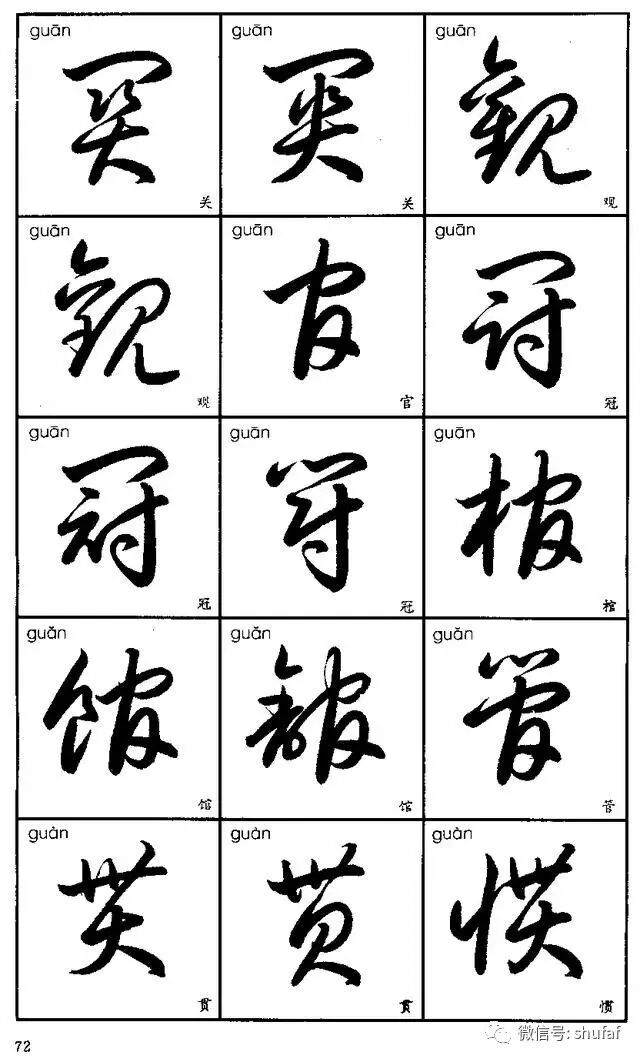 guān guān guān
关 关 观
guān guān guān
观 官 冠
guān guān guān
冠 冠 棺
guǎn guǎn guǎn
馆 馆 管
guàn guàn guàn
贯 贯 惯
72
微信号: shufaf